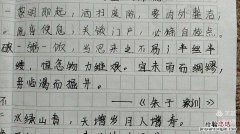 黎明即起，洒扫庭除，要内外整洁；
既昏便息，关锁门户，必亲自检点。
一粥一饭，当思来处不易；半丝半
缕，恒念物力维艰。宜未雨而绸缪，
毋临渴而掘井。
——《朱子家训》
天增岁月人增寿。